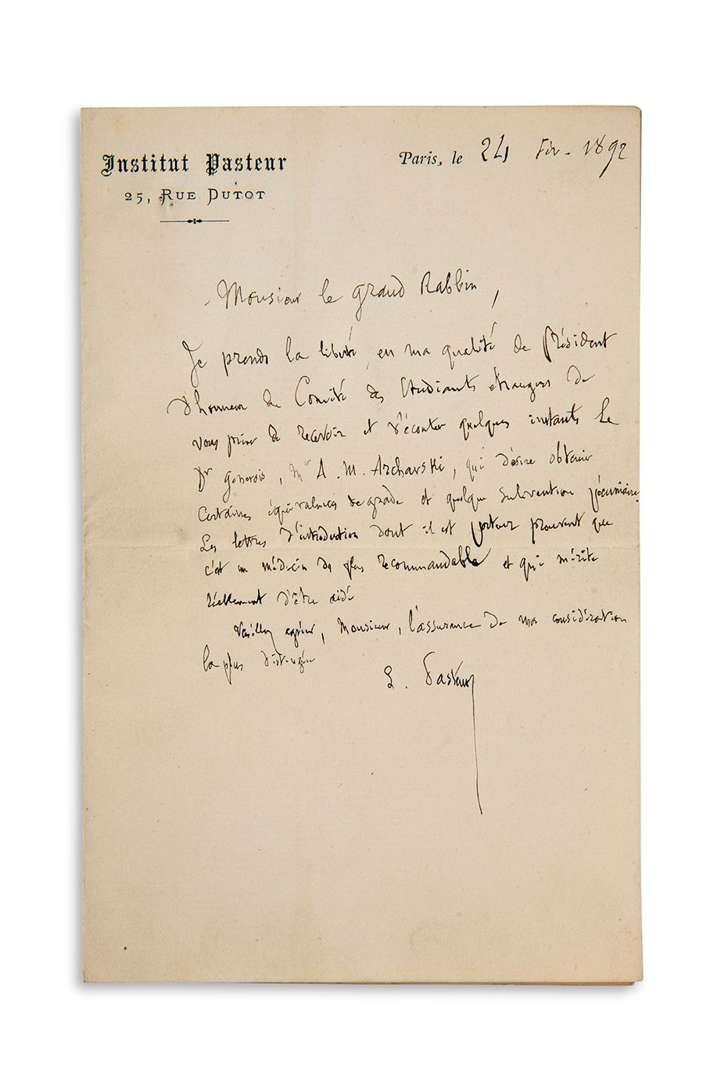 Institut Pasteur
25, RUE DUTOT
Paris, le 24 Fév. 1892
Monsieur le grand Rabbin,
Je prends la liberté, en ma qualité de Président
d'honneur du Comité des Etudiants étrangers de
vous prier de recevoir et d'écouter quelques instants le
Dr genevois, Mr A. M. Archavski, qui désire obtenir
certaines équivalences de grade et quelque subvention pécuniaire.
Les lettres d'introduction dont il est porteur prouvent que
c'est un médecin des plus recommandable et qui mérite
réellement d'être aidé
Veuillez agréer, Monsieur, l'assurance de ma considération
la plus distinguée
L. Pasteur